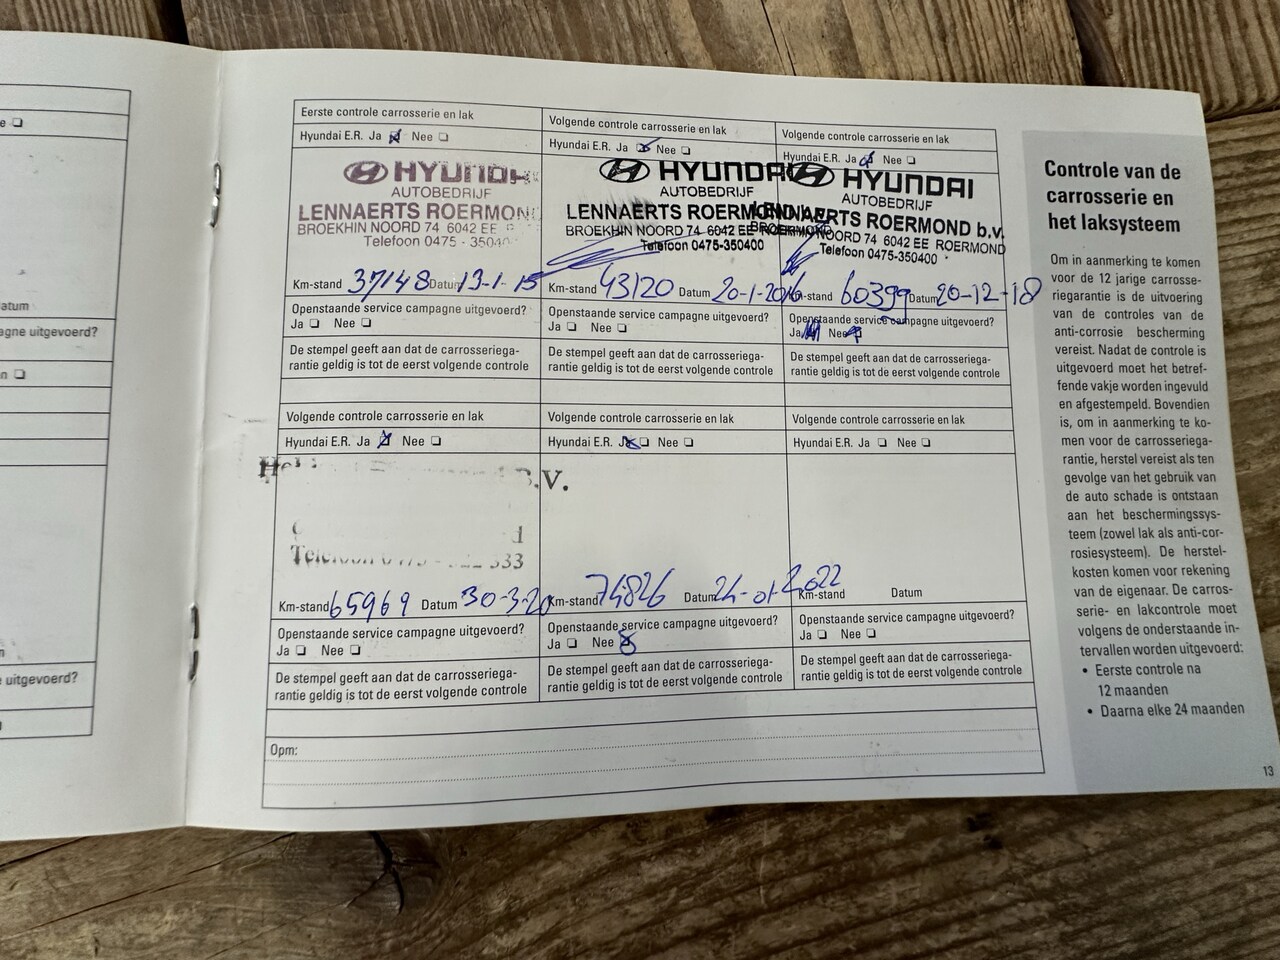 e ❑
atum
agne uitgevoerd?
n ❑
e uitgevoerd?
Eerste controle carrosserie en lak
Hyundai E.R. Ja ☒ Nee ❑
HYUNDAI
AUTOBEDRIJF
LENNAERTS ROERMON
BROEKHIN NOORD 74 6042 EE
Telefoon 0475 - 35040
Km-stand 37148 Datum 13-1-15
Openstaande service campagne uitgevoerd?
Ja ❑ Nee ❑
De stempel geeft aan dat de carrosseriega-
rantie geldig is tot de eerst volgende controle
Volgende controle carrosserie en lak
Hyundai E.R. Ja ☒ Nee ❑
HYUNDAI
AUTOBEDRIJF
LENNAERTS ROERMOND
BROEKHIN NOORD 74 6042 EE ROERMOND
Telefoon 0475-350400
Km-stand 43120 Datum 20-1-2016
Openstaande service campagne uitgevoerd?
Ja ❑ Nee ❑
De stempel geeft aan dat de carrosseriega-
rantie geldig is tot de eerst volgende controle
Volgende controle carrosserie en lak
Hyundai E.R. Ja ☒ Nee ❑
HYUNDAI
AUTOBEDRIJF
LENNAERTS ROERMOND b.v.
BROEKHIN NOORD 74 6042 EE ROERMOND
Telefoon 0475-350400
Km-stand 60399 Datum 20-12-18
Openstaande service campagne uitgevoerd?
Ja Nee ☒
De stempel geeft aan dat de carrosseriega-
rantie geldig is tot de eerst volgende controle
Volgende controle carrosserie en lak
Hyundai E.R. Ja ☒ Nee ❑
B.V.
Telefoon 333
Km-stand 65969 Datum 30-3-20
Openstaande service campagne uitgevoerd?
Ja ❑ Nee ❑
De stempel geeft aan dat de carrosseriega-
rantie geldig is tot de eerst volgende controle
Volgende controle carrosserie en lak
Hyundai E.R. Ja ☒ Nee ❑
Km-stand 74826 Datum 24-01-2022
Openstaande service campagne uitgevoerd?
Ja ❑ Nee ☒
De stempel geeft aan dat de carrosseriega-
rantie geldig is tot de eerst volgende controle
Volgende controle carrosserie en lak
Hyundai E.R. Ja ❑ Nee ❑
Km-stand Datum
Openstaande service campagne uitgevoerd?
Ja ❑ Nee ❑
De stempel geeft aan dat de carrosseriega-
rantie geldig is tot de eerst volgende controle
Opm:
Controle van de
carrosserie en
het laksysteem
Om in aanmerking te komen
voor de 12 jarige carrosse-
riegarantie is de uitvoering
van de controles van de
anti-corrosie bescherming
vereist. Nadat de controle is
uitgevoerd moet het betref-
fende vakje worden ingevuld
en afgestempeld. Bovendien
is, om in aanmerking te ko-
men voor de carrosseriega-
rantie, herstel vereist als ten
gevolge van het gebruik van
de auto schade is ontstaan
aan het beschermingssys-
teem (zowel lak als anti-cor-
rosiesysteem). De herstel-
kosten komen voor rekening
van de eigenaar. De carros-
serie- en lakcontrole moet
volgens de onderstaande in-
tervallen worden uitgevoerd:
• Eerste controle na
12 maanden
• Daarna elke 24 maanden
13